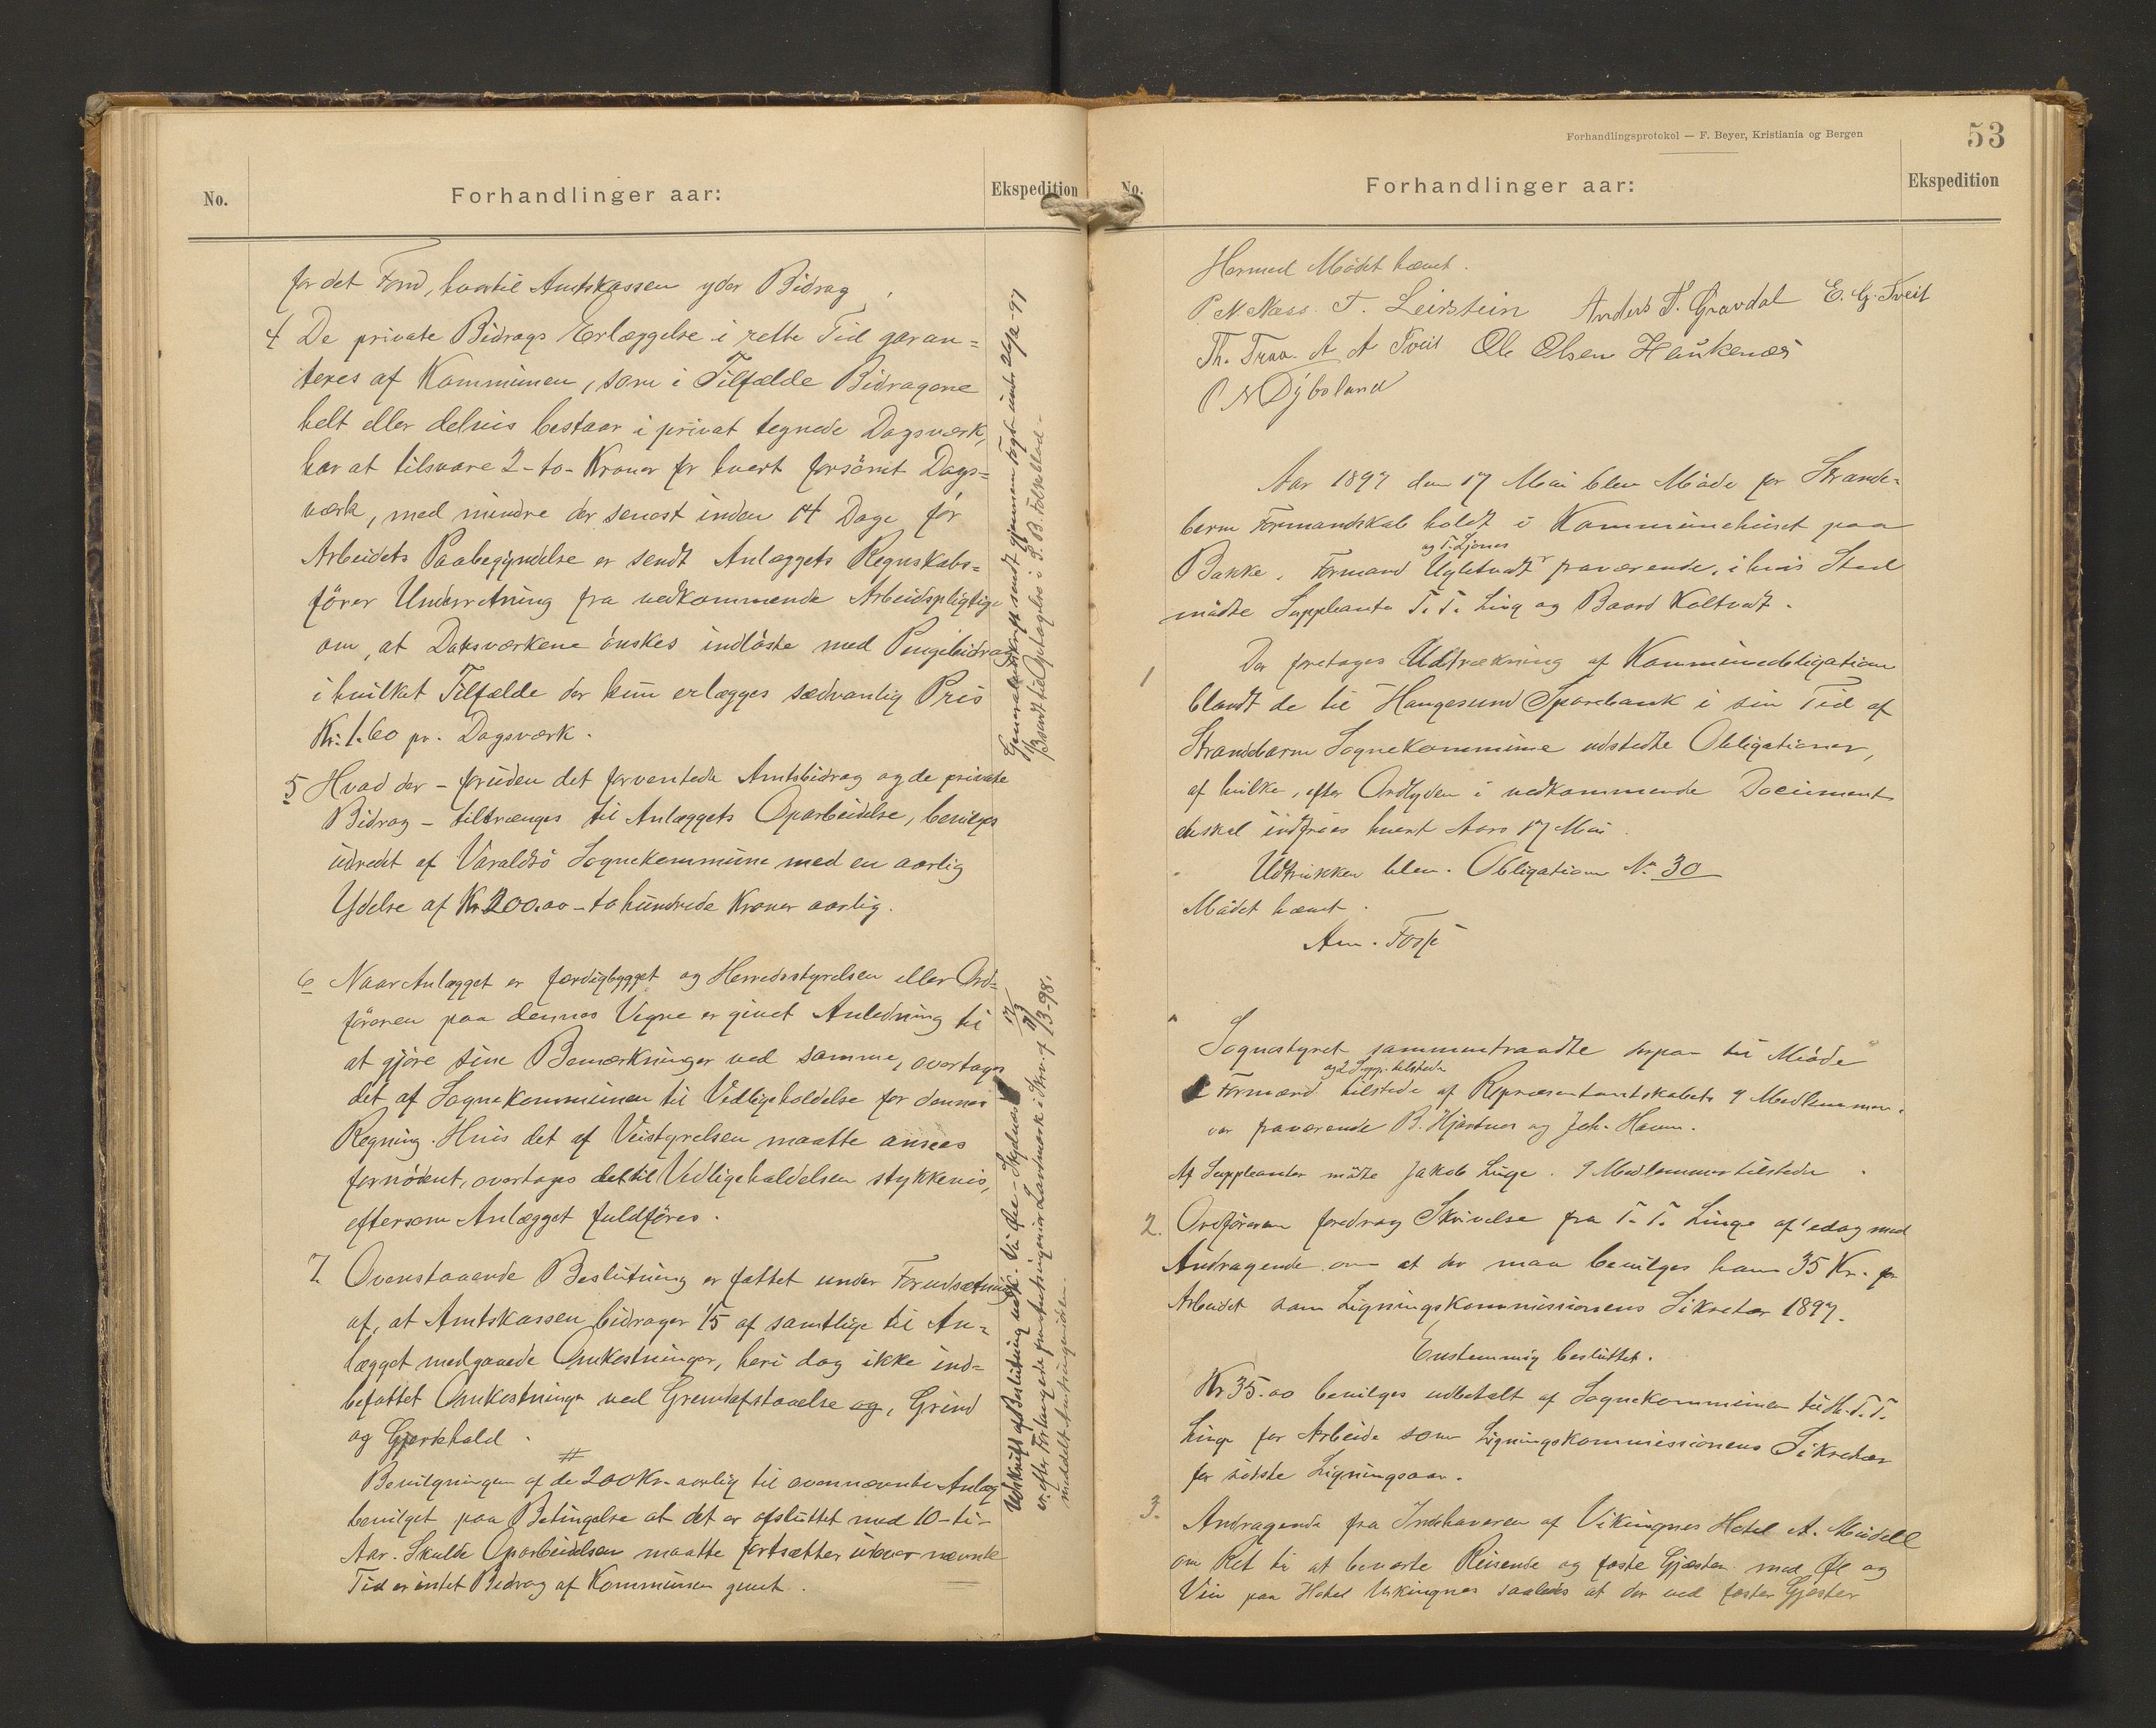 No.
Forhandlinger aar:
Ekspedition
for det Fond, hvortil Amtskassen yder Bidrag.
4 De private Bidrags Erlæggelse i rette Tid garan=
teres af Kommunen, som i Tilfælde Bidragene
helt eller delvis bestaar i privat tegnede Dagsværk,
har at tilsvare 2 - to - Kroner for hvert forsömt Dags=
værk, med mindre der senest inden 14 Dage för
Arbeidets Paabegyndelse er sendt Anlæggets Regnskabs=
förer Underretning fra vedkommende Arbeidspligtige
om, at Dagsværkene önskes indlöste med Pengebidrag
i hvilket Tilfælde der kun erlægges sædvanlig Pris
Kr: 1.60 pr. Dagsværk.
5 Hvad der - foruden det forventede Amtsbidrag og de private
Bidrag - tiltrænges til Anlæggets Oparbeidelse, bevilges
udredt af Varaldsö Sognekommune med en aarlig
Ydelse af Kr 200.00 - to hundrede Kroner aarlig.
6 Naar Anlægget er færdigbygget og Herredsstyrelsen eller Ord=
föreren paa dennes Vegne er givet Anledning til
at gjöre sine Bemærkninger ved samme, overtages
det af Sognekommunen til Vedligeholdelse for dennes
Regning. Hvis det af Veistyrelsen maatte ansees
fornödent, overtages det til Vedligeholdelsen stykkevis,
eftersom Anlægget fuldföres.
7 Ovenstaaende Beslutning er fattet under Forudsætning
af, at Amtskassen bidrager 1/5 af samtlige til An=
lægget medgaaede Omkostninger, heri dog ikke ind=
befattet Omkostninger ved Grundafstaaelse og, Grind
og Gjerdehold.
#
Bevilgningen af de 200 Kr. aarlig til ovennævnte Anlæg
bevilget paa Betingelse at det er afsluttet med 10 - ti -
Aar. Skulde Oparbeidelsen maatte fortsættes udover nævnte
Tid er intet Bidrag af Kommunen givet.
Udskrift af Beslutning
er efter Forlangende
meddelt
Forhandlingsprotokol — F. Beyer, Kristiania og Bergen
53
No.
Forhandlinger aar:
Ekspedition
Hermed Mödet hævet.
P N Næss. T. Leirstein Anders T. Gravdal E. G. Tveit
Th. Traa. A A Tveit Ole Olsen Haukenæs
P N Dybsland
Aar 1897 den 17 Mai blev Möde for Strande=
barm Formandskab holdt i Kommunehuset paa
og T. Ljones
Bakke. Formand Ugletvedt fraværende, i hvis Sted
mödte Suppleanter T. T. Linge og Baard Koltvedt.
1 Der foretages Udtrækning af Kommuneobligationer
blandt de til Haugesund Sparebank i sin Tid af
Strandebarm Sognekommune udstedte Obligationer,
af hvilke, efter Ordlyden i vedkommende Document
der skal indfries hvert Aars 17 Mai.
Udtrukken blev. Obligation No 30
Mödet hævet.
Am. Fosse
Sognestyret sammentraadte derpaa til Möde
og 2 Supp. tilstede
Formænd tilstede af Repræsentantskabets 9 Medlemmer
var fraværende B. Hjartnes og Joh. Haavn.
Af Suppleanter mödte Jakob Linge. 9 Medlemmer tilstede.
2. Ordföreren foredrag Skrivelse fra T. T. Linge af idag med
Andragende om at der maa bevilges ham 35 Kr. for
Arbeidet som Ligningskommissionens Sikretær 1897.
Enstemmig besluttet.
Kr 35.00 bevilges udbetalt af Sognekommunen til Hr. T. T.
Linge for Arbeide som Ligningskommissionens Sikretær
for sidste Ligningsaar.
3. Andragende fra Indehaveren af Vikingnes Hotel A. Meidell
om Ret til at beværte Reisende og faste Gjæster med Øl og
Vin paa Hotel Vikingnes saaledes at der ved faste Gjæster